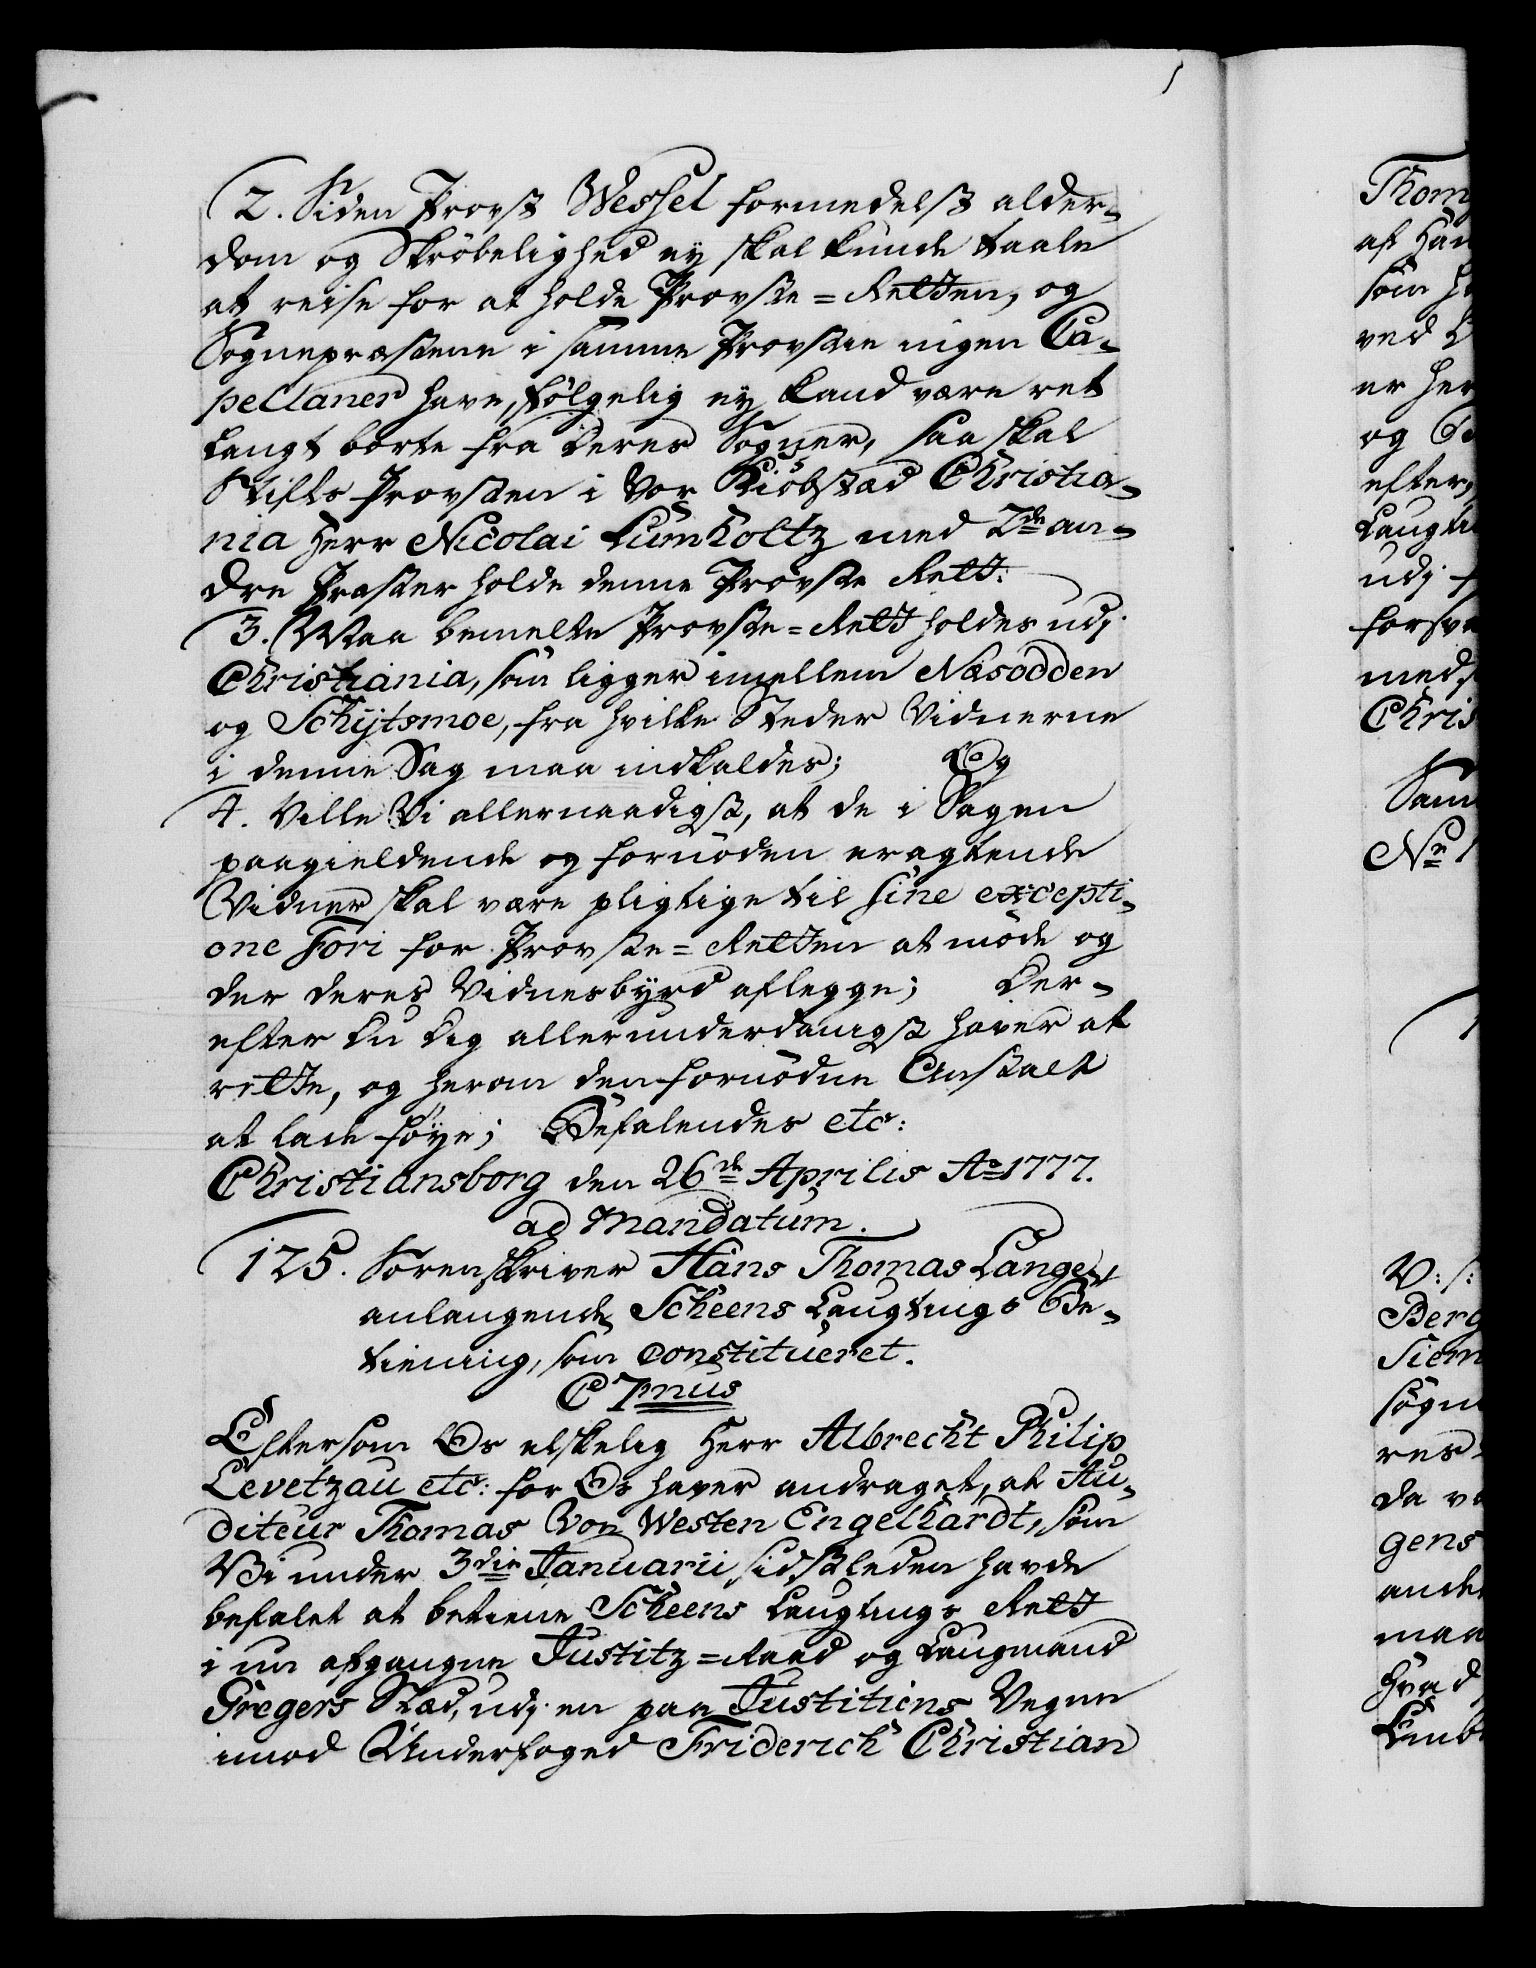 2. Siden Provst Wessel formedelst alder-
dom og Skrøbelighed ey skal kunde taale
at reise for at holde Provste=Retten, og
Sognepræstene i samme Provstie ingen Ca-
pellaner have, følgelig ey kand være ret
langt borte fra deres Sogner, saa skal
Stifts Provsten i Vor Kiøbstad Christia-
nia Herr Nicolai Lumholtz med 2de an-
dre Præster holde denne Provste Rett:
3. Maa bemelte Provste=Rett holdes udj
Christiania, som ligger imellem Næsodden
og Schijtsmoe, fra hvilke Steder Vidnerne
i denne Sag maa indkaldes; Og
4. Ville Vi allernaadigst, at de i Sagen
paagieldende og fornøden eragtende
Vidner skal være pligtige til sine excepti-
one Fori for Provste=Retten at møde og
der deres Vidnesbyrd aflegge; Der-
efter Du Dig allerunderdanigst haver at
rette, og herom den fornødne Anstalt
at lade føye; Befalendes etc:
Christiansborg den 26de Aprilis Ao 1777.
ad Mandatum.
125. Sorenskriver Hans Thomas Lange,
anlangende Scheens Laugtings Be-
tiening, som Constitueret.
C 7mus
Eftersom Os elskelig Herr Albrecht Philip
Levetzau etc: for Os haver andraget, at Au-
diteur Thomas Von Westen Engelhardt, som
Vi under 3die Januarii sidstleden havde
befalet at betiene Scheens Laugtings Rett
i nu afgangne Justitz=Raad og Laugmand
Gregers Stad, udj en paa Justitiens Vegne
imod Underfoged Friderich Christian
Thom
af Han
som h
ved
er her
og
efter
Laugti
udj
forsva
med
Chris
Sam
No 1
V: s:
Berg
Siem
søgn
res
da v
gens
ande
maa
hvad
Emb